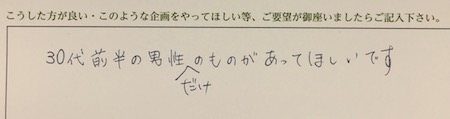 こうした方が良い・このような企画をやってほしい等、ご要望が御座いましたらご記入下さい。
30代前半の男性だけのものがあってほしいです